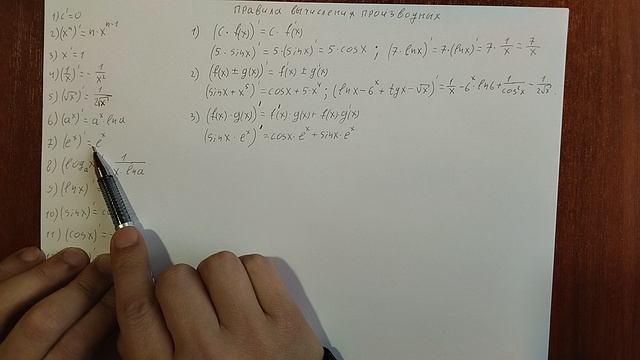 правила вычисления производных
1) c'=0
2) (xⁿ)'=n·xⁿ⁻¹
3) x'=1
4) (1/x)'=-1/x²
5) (√x)'=1/2√x
6) (aˣ)'=aˣ·lna
7) (eˣ)'=eˣ
8) (logₐx 1/x·lna
9) (lnx)'
10) (sinx)'=co
11) (cosx)'=-
1) (c·f(x))'=c·f'(x)
(5·sinx)'=5·(sinx)'=5·cosx; (7·lnx)'=7·(lnx)'=7·1/x=7/x
2) (f(x)±g(x))'=f'(x)±g'(x)
(sinx+x⁵)'=cosx+5·x⁴; (lnx-6ˣ+tgx-√x)'=1/x-6ˣ·ln6+1/cos²x-1/2√x.
3) (f(x)·g(x))'=f'(x)·g(x)+f(x)·g'(x)
(sinx·eˣ)'=cosx·eˣ+sinx·eˣ